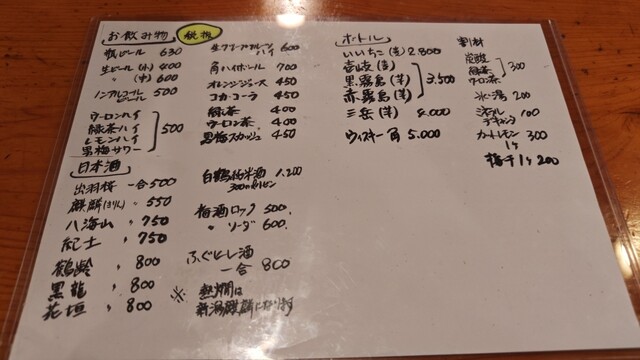 お飲み物 税抜
瓶ビール 630
生ビール(小) 400
〃 (中) 600
ノンアルコールビール 500
ウーロンハイ
緑茶ハイ
レモンハイ
黒梅サワー
500
生グレープフルーツハイ 600
角ハイボール 700
オレンジジュース 450
コカ・コーラ 450
緑茶 400
ウーロン茶 400
黒梅スカッシュ 450
日本酒
出羽桜 一合 500
麒麟(きりん) 〃 550
八海山 〃 750
紀土 〃 750
鶴齢 〃 800
黒龍 〃 800
花垣 〃 800
白鶴純米酒 1,200
300ml
梅酒ロック 500
〃 ソーダ 600
ふぐヒレ酒
一合 800
※ 熱燗は
新潟麒麟になります
ボトル
いいちこ(麦) 2800
壱岐(麦)
黒霧島(芋)
赤霧島(芋)
3,500
三岳(芋) 4,000
ウィスキー角 5.000
割材
炭酸
緑茶
ウーロン茶
300
氷・湯 200
ミネラル 100
カットレモン 300
1ケ
梅干1ケ 200